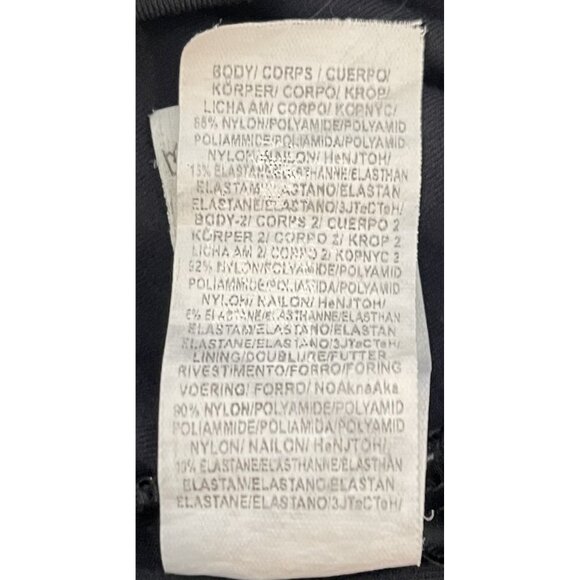 BODY/ CORPS / CUERPO/
KÖRPER/ CORPO/ KROP/
LICHAAM/ CORPO/ KOPNYC/
NYLON/POLYAMIDE/POLYAMID
POLIAMMIDE/POLIAMIDA/POLYAMID
NYLON/NAILON/ HeNJTOH/
ELASTANE/ELASTHANNE/ELASTHAN
ELASTAM/ELASTANO/ELASTAN
ELASTANE/ELASTANO/3JTaCTeH/
BODY-2/ CORPS 2/ CUERPO 2
KÖRPER 2/ CORPO 2/ KROP 2
LICHA AM 2/ CORPO 2/ KOPNYC 2
92% NYLON/POLYAMIDE/POLYAMID
POLIAMMIDE/POLIAMIDA/POLYAMID
NYLON/ NAILON/ HeNJTOH/
ELASTANE/ELASTHANNE/ELASTHAN
ELASTAM/ELASTANO/ELASTAN
ELASTANE/ELASTANO/3JTaCTeH/
LINING/DOUBLURE/FUTTER
RIVESTIMENTO/FORRO/FORING
VOERING/ FORRO/ NOAknaAka
90% NYLON/POLYAMIDE/POLYAMID
POLIAMMIDE/POLIAMIDA/POLYAMID
NYLON/ NAILON/ HeNJTOH/
10% ELASTANE/ELASTHANNE/ELASTHAN
ELASTAM/ELASTANO/ELASTAN
ELASTANE/ELASTANO/3JTaCTeH/